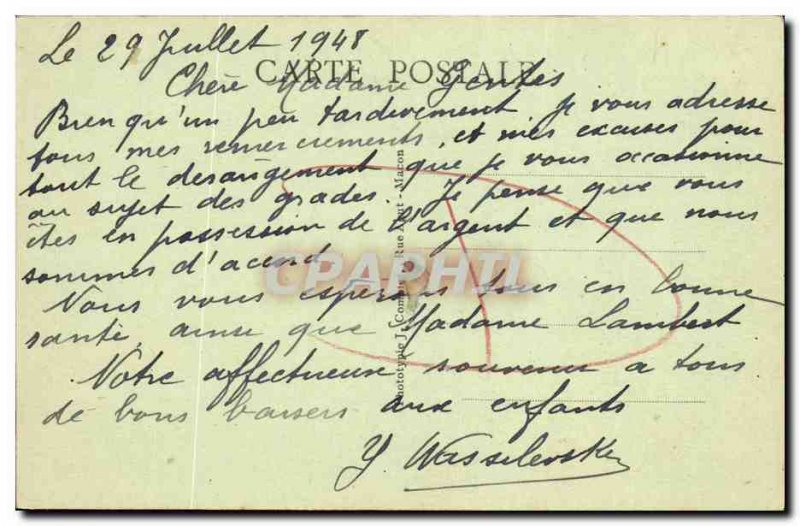 Le 29 Juillet 1948
CARTE POSTALE
Chère Madame Gentis
Bien qu'un peu tardivement je vous adresse
tous mes remerciements, et mes excuses pour
tout le derangement que je vous occasionne
au sujet des grades. Je pense que vous
êtes en possession de l'argent et que nous
sommes d'accord
CPAPHIL
Nous vous esperons tous en bonne
santé, ainsi que Madame Lambert
Notre affectueux souvenir a tous
de bons baisers aux enfants
Y. Wassilevsky
Phototypie J. Combier Rue Agut - Macon